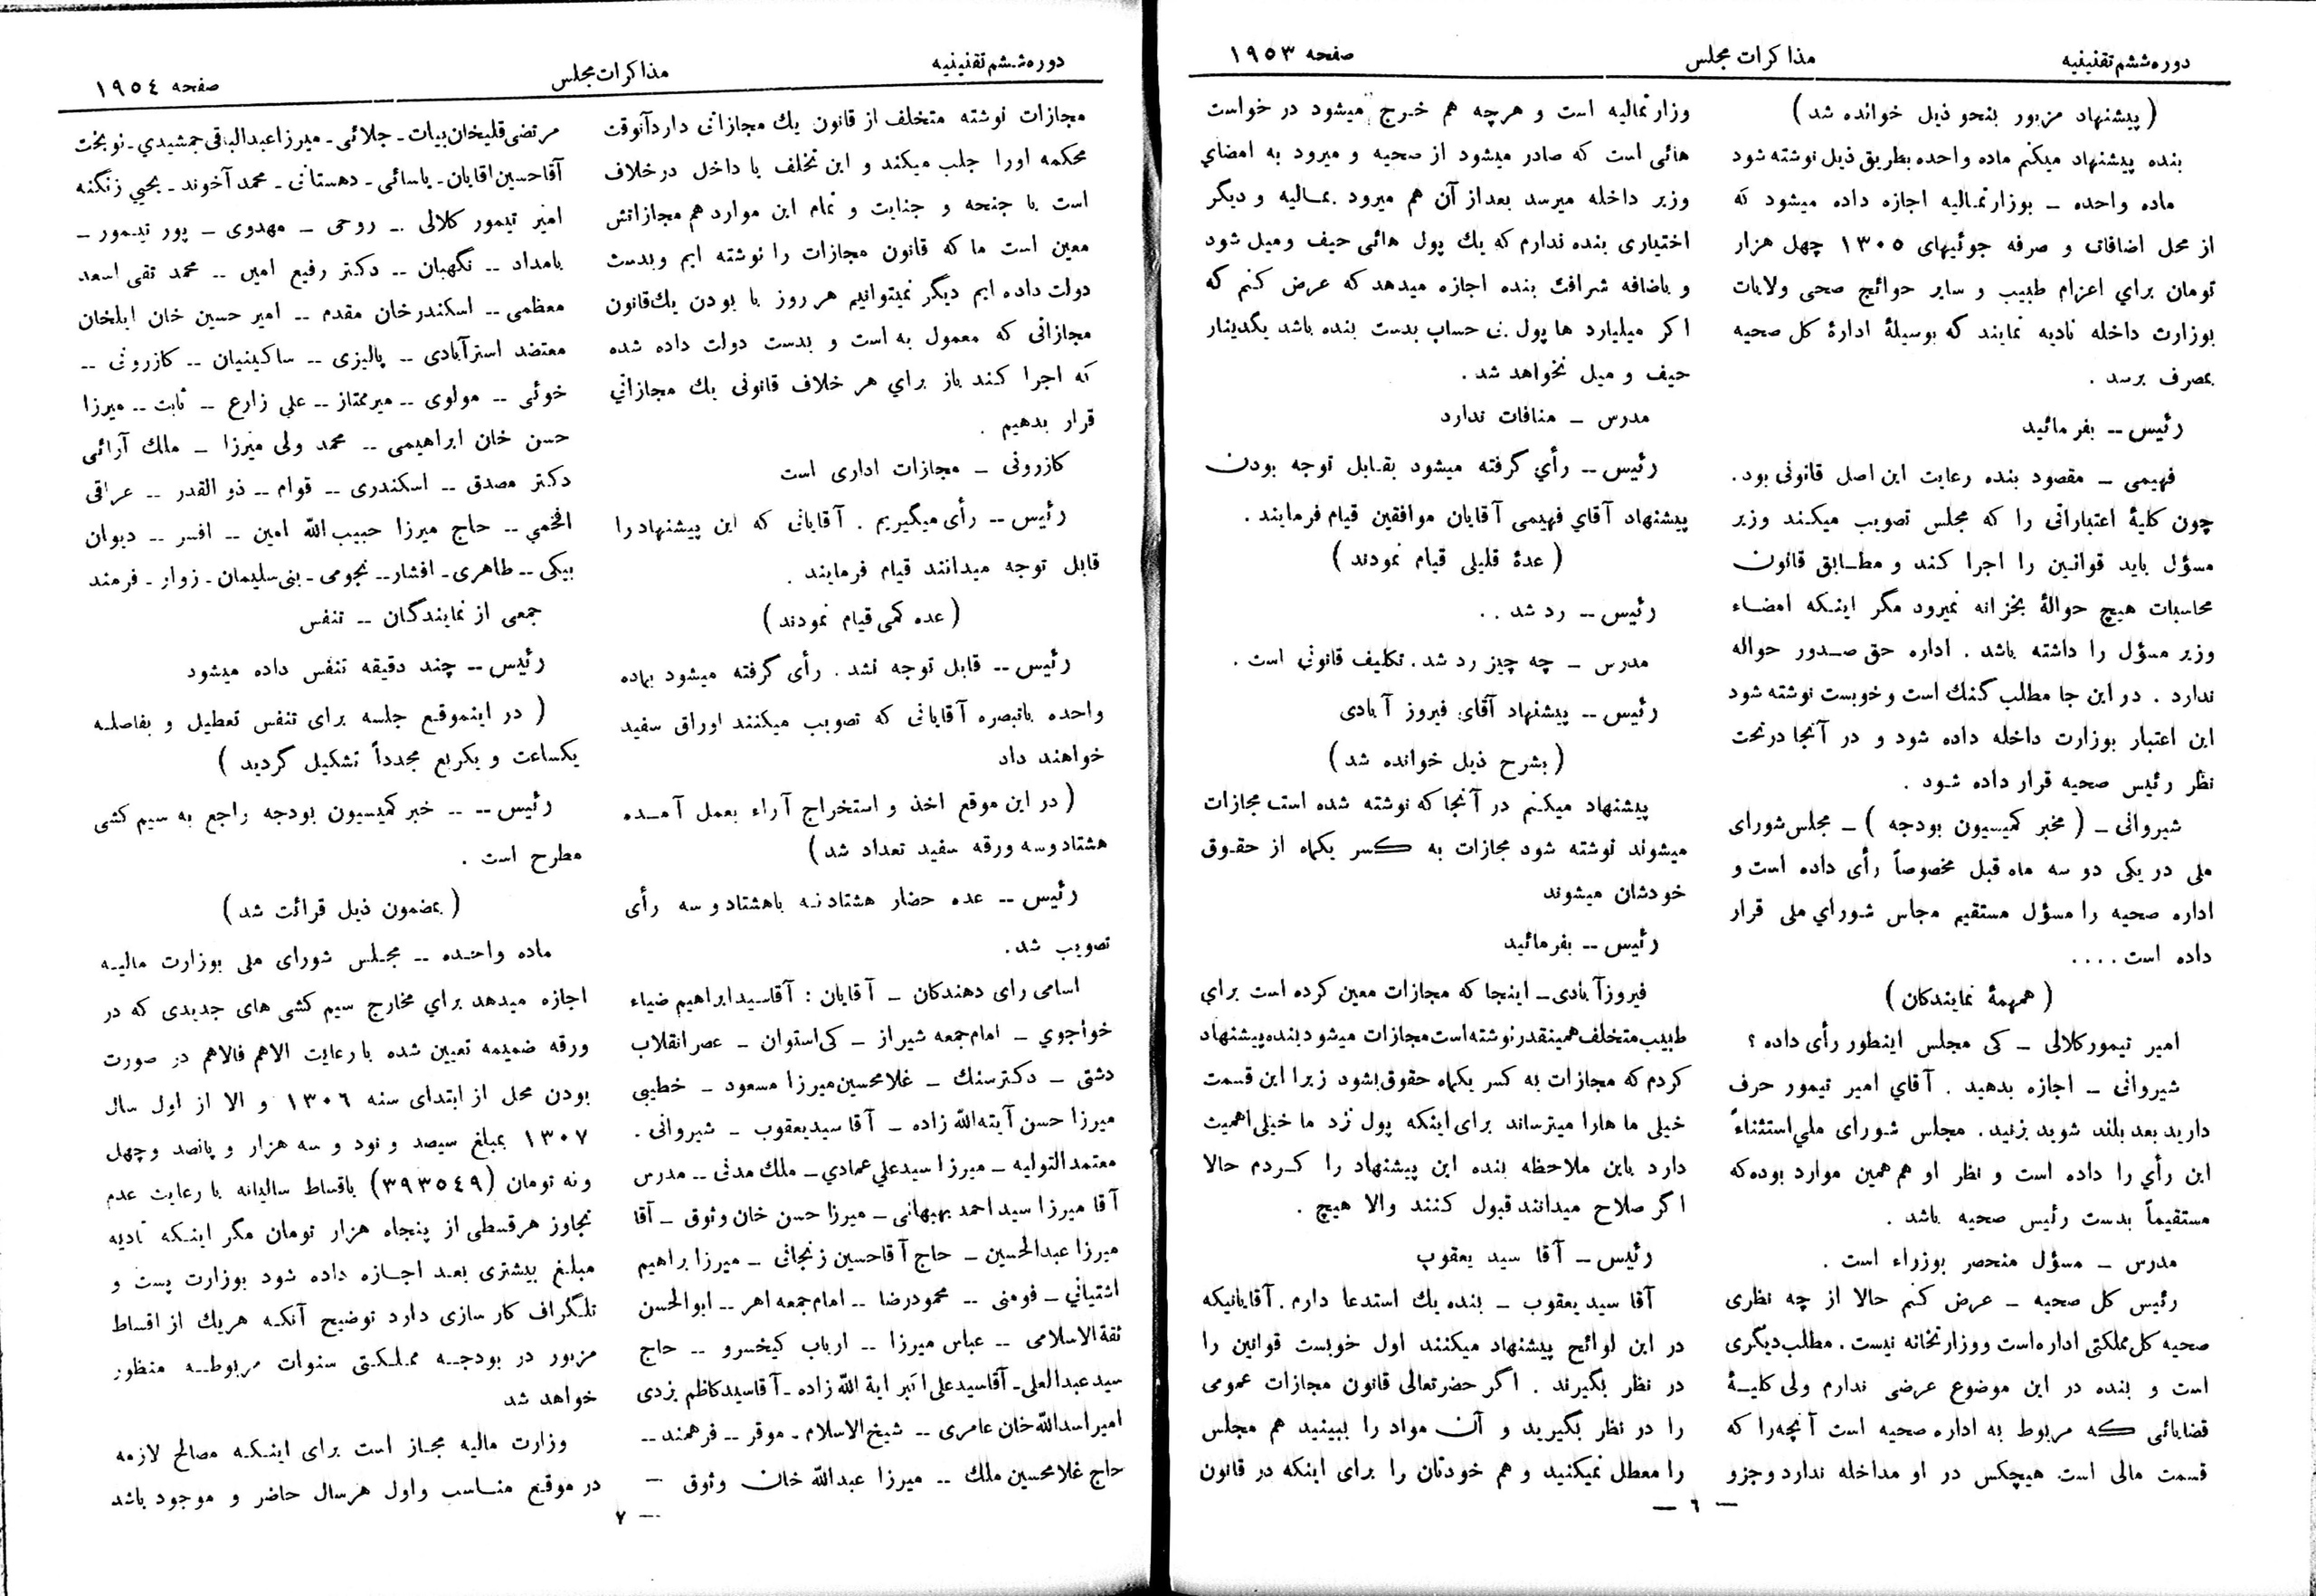 دوره ششم تقنینیه
مذاکرات مجلس
صفحه ۱۹۵۳
(پیشنهاد مزبور بنحو ذیل خوانده شد)
بنده پیشنهاد میکنم ماده واحده بطریق ذیل نوشته شود
ماده واحده – بوزارت مالیه اجازه داده میشود که
از محل اضافات و صرفه جوئیهای ۱۳۰۵ چهل هزار
تومان براي اعزام طبیب و سایر حوائج صحی ولایات
بوزارت داخله تادیه نمایند که بوسیلهٔ ادارهٔ کل صحیه
بمصرف برسد .
رئیس -- بفرمائید
فهیمی – مقصود بنده رعایت این اصل قانونی بود.
چون کلیهٔ اعتباراتی را که مجلس تصویب میکند وزیر
مسؤل باید قوانین را اجرا کند و مطابق قانون
محاسبات هیچ حوالهٔ بخزانه نمیرود مگر اینکه امضاء
وزیر مسؤل را داشته باشد . اداره حق صدور حواله
ندارد . در این جا مطلب گنك است و خوبست نوشته شود
این اعتبار بوزارت داخله داده شود و در آنجا در تحت
نظر رئیس صحیه قرار داده شود .
شیروانی – (مخبر کمیسیون بودجه) – مجلس شورای
ملی در یکی دو سه ماه قبل مخصوصاً رأی داده است و
اداره صحیه را مسؤل مستقیم مجلس شوراي ملی قرار
داده است ....
(همهمهٔ نمایندکان)
امیر تیمور کلالی – کی مجلس اینطور رأی داده ؟
شیروانی – اجازه بدهید . آقاي امیر تیمور حرف
دارید بعد بلند شوید بزنید. مجلس شورای ملي استثناءً
این رأي را داده است و نظر او هم همین موارد بوده که
مستقیماً بدست رئیس صحیه باشد .
مدرس – مسؤل منحصر بوزراء است .
رئیس کل صحیه – عرض کنم حالا از چه نظری
صحیه کل مملکتی اداره است و وزارتخانه نیست. مطلب دیگری
است و بنده در این موضوع عرضی ندارم ولی کلیهٔ
قضایائی که مربوط به اداره صحیه است آنچه را که
قسمت مالی است هیچکس در او مداخله ندارد و جزو
وزارت مالیه است و هرچه هم خرج میشود در خواست
هائی است که صادر میشود از صحیه و میرود به امضاي
وزیر داخله میرسد بعد از آن هم میرود بمالیه و دیگر
اختیاری بنده ندارم که یك پول هائی حیف و میل شود
و باضافه شرافت بنده اجازه میدهد که عرض کنم که
اکر میلیارد ها پول بی حساب بدست بنده باشد یکدینار
حیف و میل نخواهد شد .
مدرس – منافات ندارد
رئیس -- رأي گرفته میشود بقابل توجه بودن
پیشنهاد آقاي فهیمی آقایان موافقین قیام فرمایند .
(عدهٔ قلیلی قیام نمودند)
رئیس -- رد شد . .
مدرس – چه چیز رد شد . تکلیف قانونی است .
رئیس -- پیشنهاد آقای فیروز آبادی
(بشرح ذیل خوانده شد)
پیشنهاد میکنم در آنجا که نوشته شده است مجازات
میشوند نوشته شود مجازات به کسر یکماه از حقوق
خودشان میشوند
رئیس -- بفرمائید
فیروزآبادی – اینجا که مجازات معین کرده است برای
طبیب متخلف همینقدر نوشته است مجازات میشود بنده پیشنهاد
کردم که مجازات به کسر یکماه حقوق بشود زیرا این قسمت
خیلی ماها را میترساند برای اینکه پول نزد ما خیلی اهمیت
دارد باین ملاحظه بنده این پیشنهاد را کردم حالا
اکر صلاح میدانند قبول کنند والا هیچ .
رئیس – آقا سید یعقوب
آقا سید یعقوب – بنده یك استدعا دارم . آقایانیکه
در این لوائح پیشنهاد میکنند اول خوبست قوانین را
در نظر بگیرند . اگر حضرتعالی قانون مجازات عمومی
را در نظر بگیرید و آن مواد را ببینید هم مجلس
را معطل نمیکنید و هم خودتان را برای اینکه در قانون
— ٦ —
دوره ششم تقنینیه
مذاکرات مجلس
صفحه ۱۹۵٤
مجازات نوشته متخلف از قانون یك مجازاتی دارد آنوقت
محکمه اورا جلب میکند و این تخلف یا داخل در خلاف
است یا جنحه و جنایت و تمام این موارد هم مجازاتش
معین است ما که قانون مجازات را نوشته ایم و بدست
دولت داده ایم دیگر نمیتوانیم هر روز با بودن یك قانون
مجازاتی که معمول به است و بدست دولت داده شده
که اجرا کند باز براي هر خلاف قانونی یك مجازاتي
قرار بدهیم .
کازرونی – مجازات اداری است
رئیس -- رأی میگیریم . آقایانی که این پیشنهاد را
قابل توجه میدانند قیام فرمایند .
(عده کمی قیام نمودند)
رئیس -- قابل توجه نشد . رأی گرفته میشود بماده
واحده باتبصره آقایانی که تصویب میکنند اوراق سفید
خواهند داد
(در این موقع اخذ و استخراج آراء بعمل آمده
هشتاد وسه ورقه سفید تعداد شد)
رئیس -- عده حضار هشتادنه باهشتاد و سه رأی
تصویب شد.
اسامی رای دهندکان – آقایان : آقاسید ابراهیم ضیاء
خواجوي – امام جمعه شیراز – کی استوان – عصر انقلاب
دشتی – دکتر سنك – غلامحسین میرزا مسعود – خطیبی
میرزا حسن آیته الله زاده – آقا سید یعقوب – شیروانی .
معتمد التولیه – میرزا سید علي عمادي – ملك مدنی -- مدرس
آقا میرزا سید احمد بهبهانی – میرزا حسن خان وثوق – آقا
میرزا عبدالحسین – حاج آقا حسین زنجانی – میرزا براهیم
اشتیاني – فومنی -- محمود رضا -- امام جمعه اهر -- ابوالحسن
ثقة الاسلامی -- عباس میرزا -- ارباب کیخسرو -- حاج
سید عبدالعلی – آقاسید علی اکبر ایة الله زاده – آقاسید کاظم یزدی
امیر اسدالله خان عامری -- شیخ الاسلام – موقر -- فرهمند --
حاج غلامحسین ملك -- میرزا عبدالله خان وثوق –
مرتضی قلیخان بیات – جلائی – میرزا عبدالباقی جمشیدي – نوبخت
آقا حسین اقایان – یاسائی – دهستانی – محمد آخوند – یحیي زنگنه
امیر تیمور کلالی – روحی – مهدوی – پور تیمور –
بامداد -- نگهبان -- دکتر رفیع امین -- محمد تقی اسعد
معظمی -- اسکندر خان مقدم -- امیر حسین خان ایلخان
معتضد استرآبادی -- پالیزی -- ساکینیان -- کازرونی --
خوئی -- مولوی -- میرممتاز -- علي زارع -- ثابت -- میرزا
حسن خان ابراهیمی -- محمد ولی میرزا – ملك آرائی
دکتر مصدق -- اسکندری -- قوام -- ذوالقدر -- عراقی
افخمي -- حاج میرزا حبیب الله امین -- افسر -- دیوان
بیکی -- طاهری – افشار -- نجومی – بنی سلیمان – زوار – فرمند
جمعی از نمایندگان -- تنفس
رئیس -- چند دقیقه تنفس داده میشود
(در اینموقع جلسه برای تنفس تعطیل و بفاصله
یکساعت و یکربع مجدداً تشکیل گردید)
رئیس -- -- خبر کمیسیون بودجه راجع به سیم کشی
مطرح است .
(بمضمون ذیل قرائت شد)
ماده واحده -- مجلس شورای ملی بوزارت مالیه
اجازه میدهد براي مخارج سیم کشی های جدیدی که در
ورقه ضمیمه تعیین شده با رعایت الاهم فالاهم در صورت
بودن محل از ابتدای سنه ۱۳۰٦ و الا از اول سال
۱۳۰۷ بمبلغ سیصد و نود و سه هزار و پانصد و چهل
و نه تومان (۳۹۳۵٤۹) باقساط سالیانه با رعایت عدم
تجاوز هر قسطی از پنجاه هزار تومان مگر اینکه تادیه
مبلغ بیشتری بعد اجازه داده شود بوزارت پست و
تلگراف کار سازی دارد توضیح آنکه هریك از اقساط
مزبور در بودجه مملکتی سنوات مربوطه منظور
خواهد شد
وزارت مالیه مجاز است برای اینکه مصالح لازمه
در موقع مناسب و اول هرسال حاضر و موجود باشد
— ۷